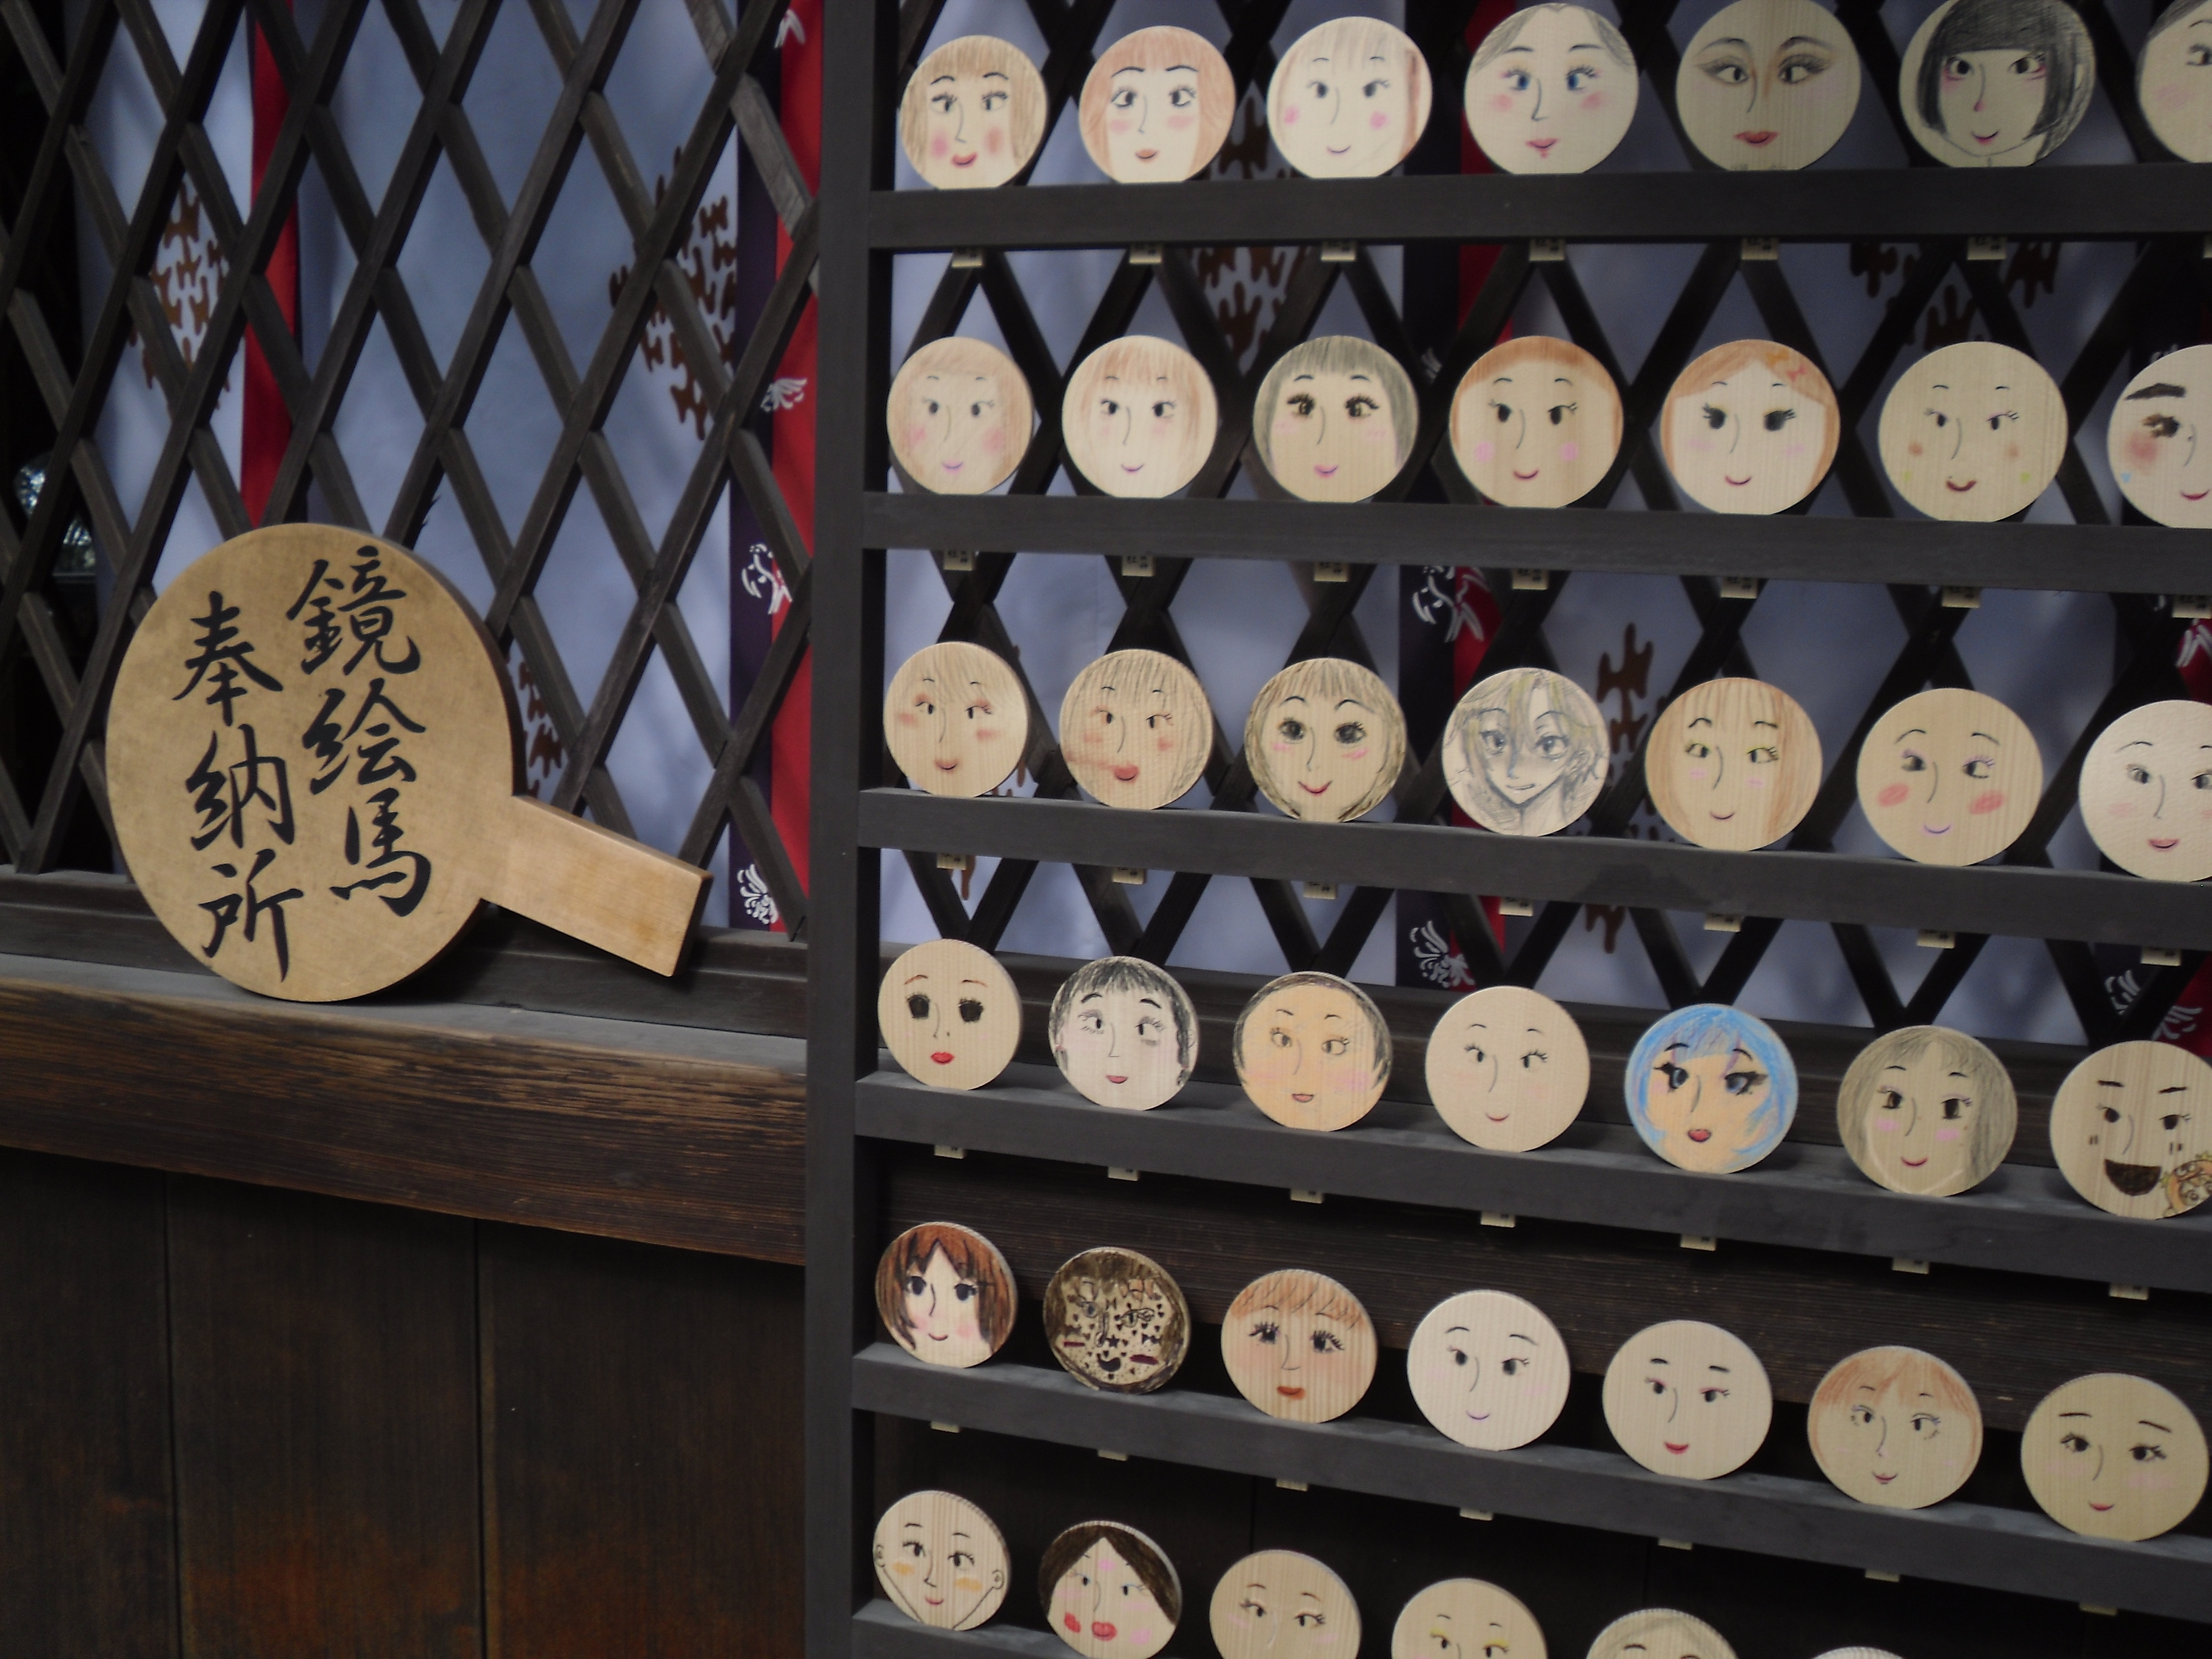 鏡絵馬
奉納所